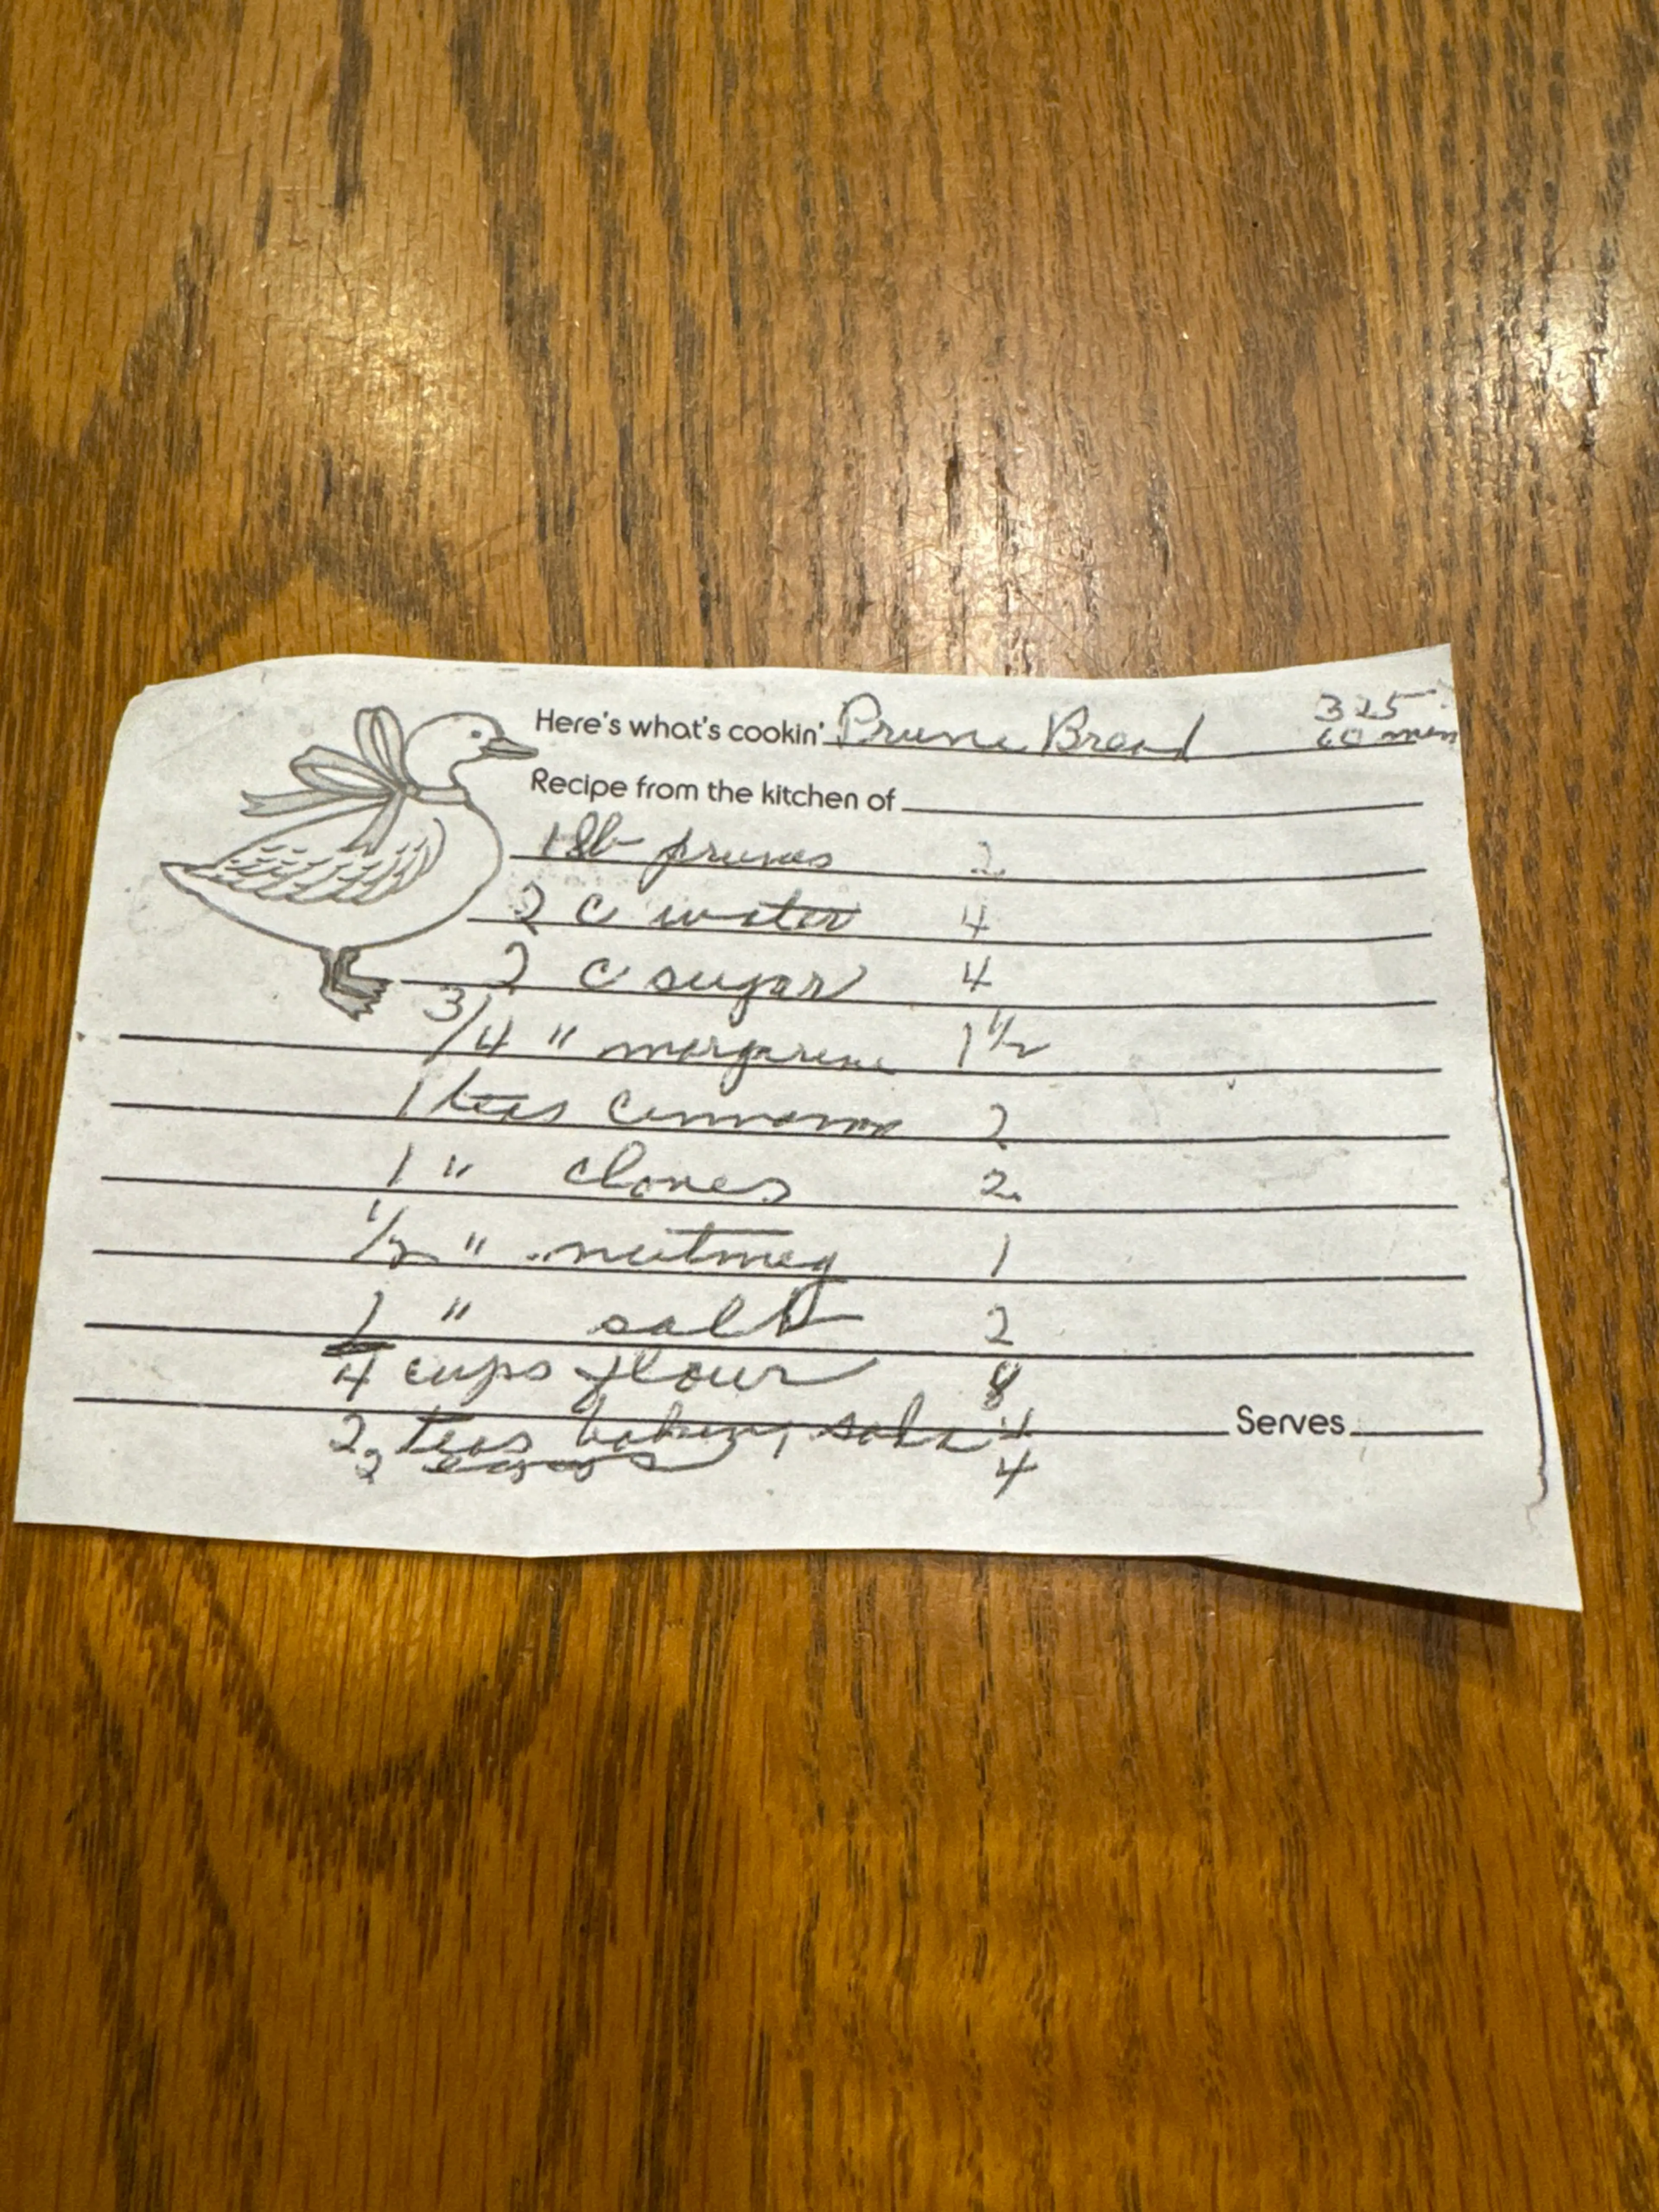 Here's what's cookin' Prune Bread 325
60 min
Recipe from the kitchen of
1 lb prunes 2
2 c water 4
2 c sugar 4
3/4 " margarine 1 1/2
1 teas cinnamon 2
1 " cloves 2
1/2 " nutmeg 1
1 " salt 2
4 cups flour 8
2 teas baking soda 4 Serves
2 eggs 4